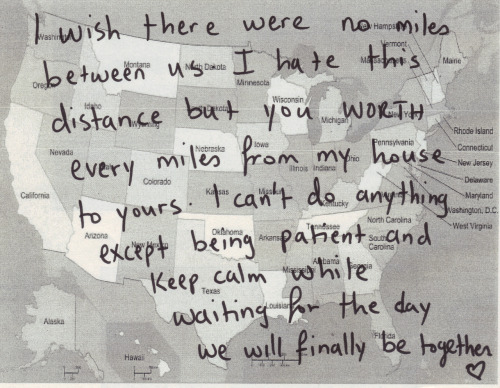 I wish there were no miles
between us I hate this
distance but you WORTH
every miles from my house
to yours. I can't do anything
except being patient and
Keep calm while
waiting for the day
we will finally be together
Washington
New Hampshire
Vermont
Montana
North Dakota
Massachusetts
Maine
Oregon
Minnesota
Idaho
Wisconsin
Wyoming
Michigan
New York
Rhode Island
Nevada
Nebraska
Iowa
Pennsylvania
Connecticut
Illinois
Indiana
Ohio
New Jersey
California
Colorado
Delaware
Kansas
Maryland
Kentucky
Washington, D.C.
North Carolina
West Virginia
Arizona
New Mexico
Oklahoma
Arkansas
Tennessee
South
Carolina
Mississippi
Alabama
Georgia
Texas
Louisiana
Alaska
Florida
Hawaii